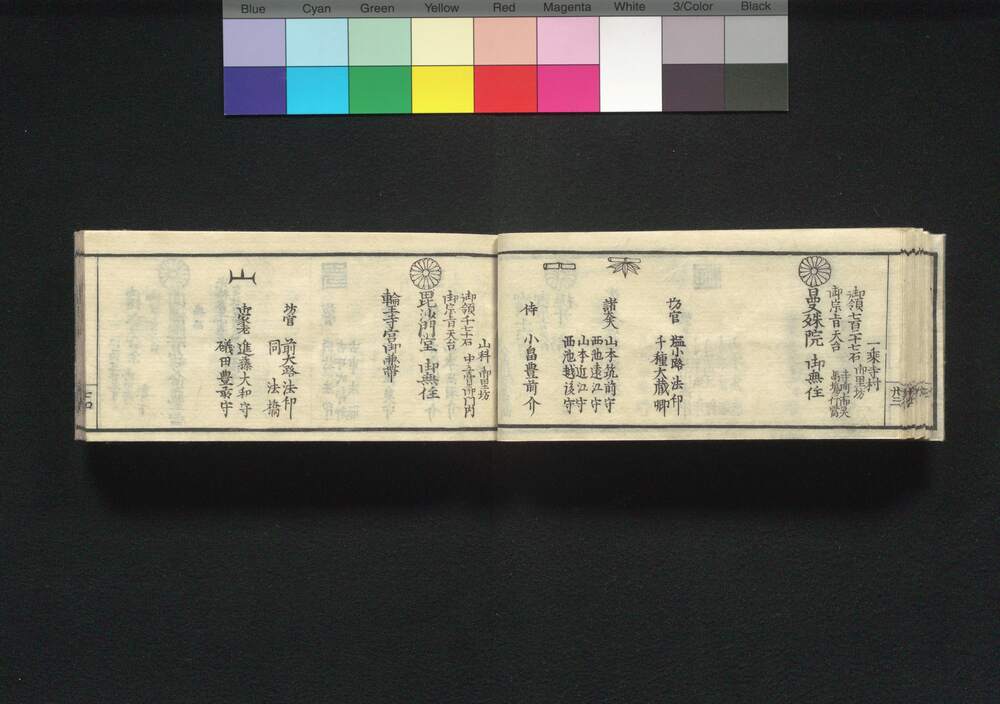 Blue Cyan Green Yellow Red Magenta White 3/Color Black
一乗寺村
御領七百二十七石 御里坊
御宗旨天台
曼殊院 御無住
坊官 塩小路法印
千種大蔵卿
諸大夫 山本筑前守
西池遠江守
山本近江守
西池越後守
侍 小畠豊前介
山科 御里坊
御領千七十石
御宗旨天台
毘沙門堂 御無住
輪王寺宮御兼帯
坊官 前大路法印
同 法橋
進藤大和守
礒田豊前守